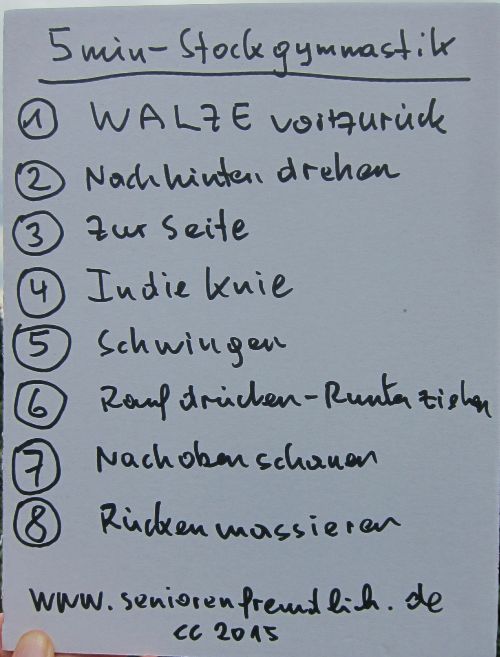 5min-Stockgymnastik
1 WALZE vor+zurück
2 Nach hinten drehen
3 Zur Seite
4 In die Knie
5 Schwingen
6 Rauf drücken-Runter ziehen
7 Nach oben schauen
8 Rücken massieren
www.seniorenfreundlich.de
cc 2015